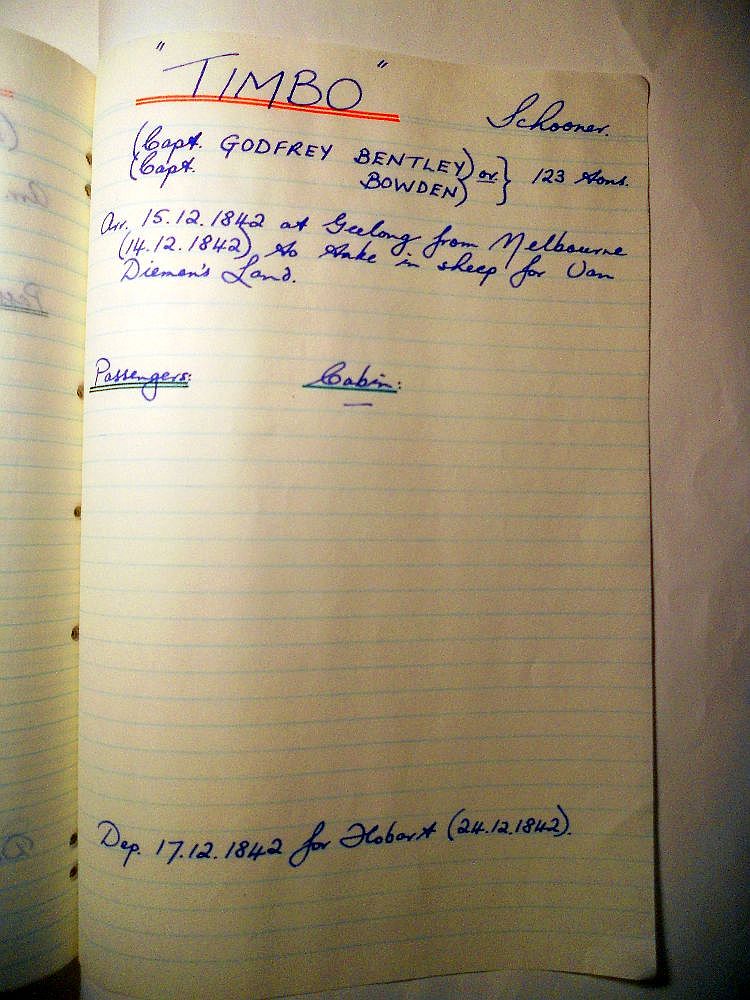 "TIMBO"
Schooner.
(Capt. GODFREY BENTLEY) or } 123 tons.
(Capt. BOWDEN)
Arr. 15.12.1842 at Geelong from Melbourne
(14.12.1842) to take in sheep for Van
Diemen's Land.
Passengers: Cabin:
—
Dep. 17.12.1842 for Hobart (24.12.1842).